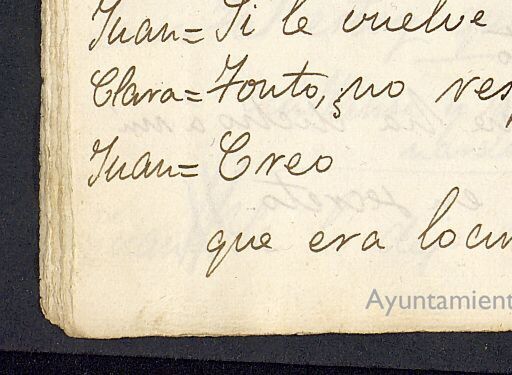 Juan= Si le vuelve
Clara= Tonto, ¿no res
Juan= Creo
que era locur
Ayuntamient